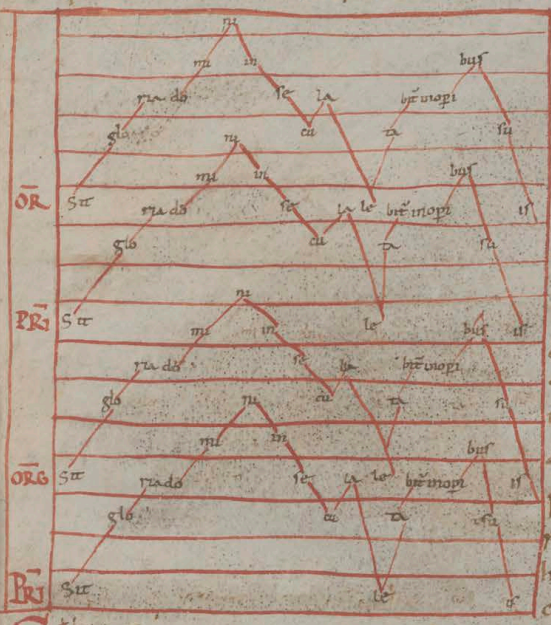 OR Sit glo ria do mi ni in se cu la le ta bit inopi bus su is
PRI Sit glo ria do mi ni in se cu la le ta bit inopi bus su is
ORG Sit glo ria do mi ni in se cu la le ta bit inopi bus su is
PRI Sit glo ria do mi ni in se cu la le ta bit inopi bus su is